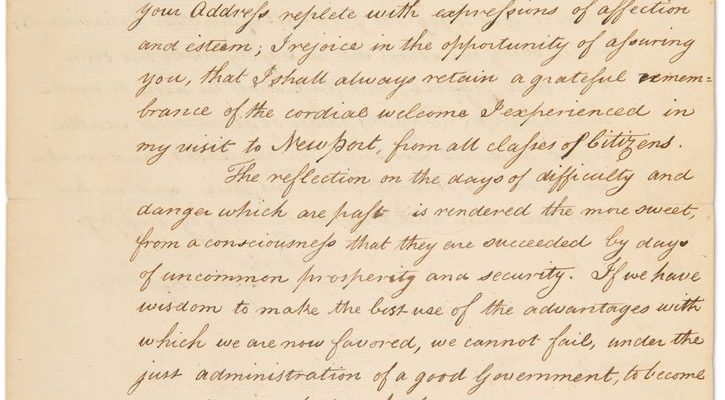 your Address replete with expressions of affection
and esteem; I rejoice in the opportunity of assuring
you, that I shall always retain a grateful remem-
brance of the cordial welcome I experienced in
my visit to Newport, from all classes of Citizens.
The reflection on the days of difficulty and
danger which are past is rendered the more sweet,
from a consciousness that they are succeeded by days
of uncommon prosperity and security. If we have
wisdom to make the best use of the advantages with
which we are now favored, we cannot fail, under the
just administration of a good Government, to become